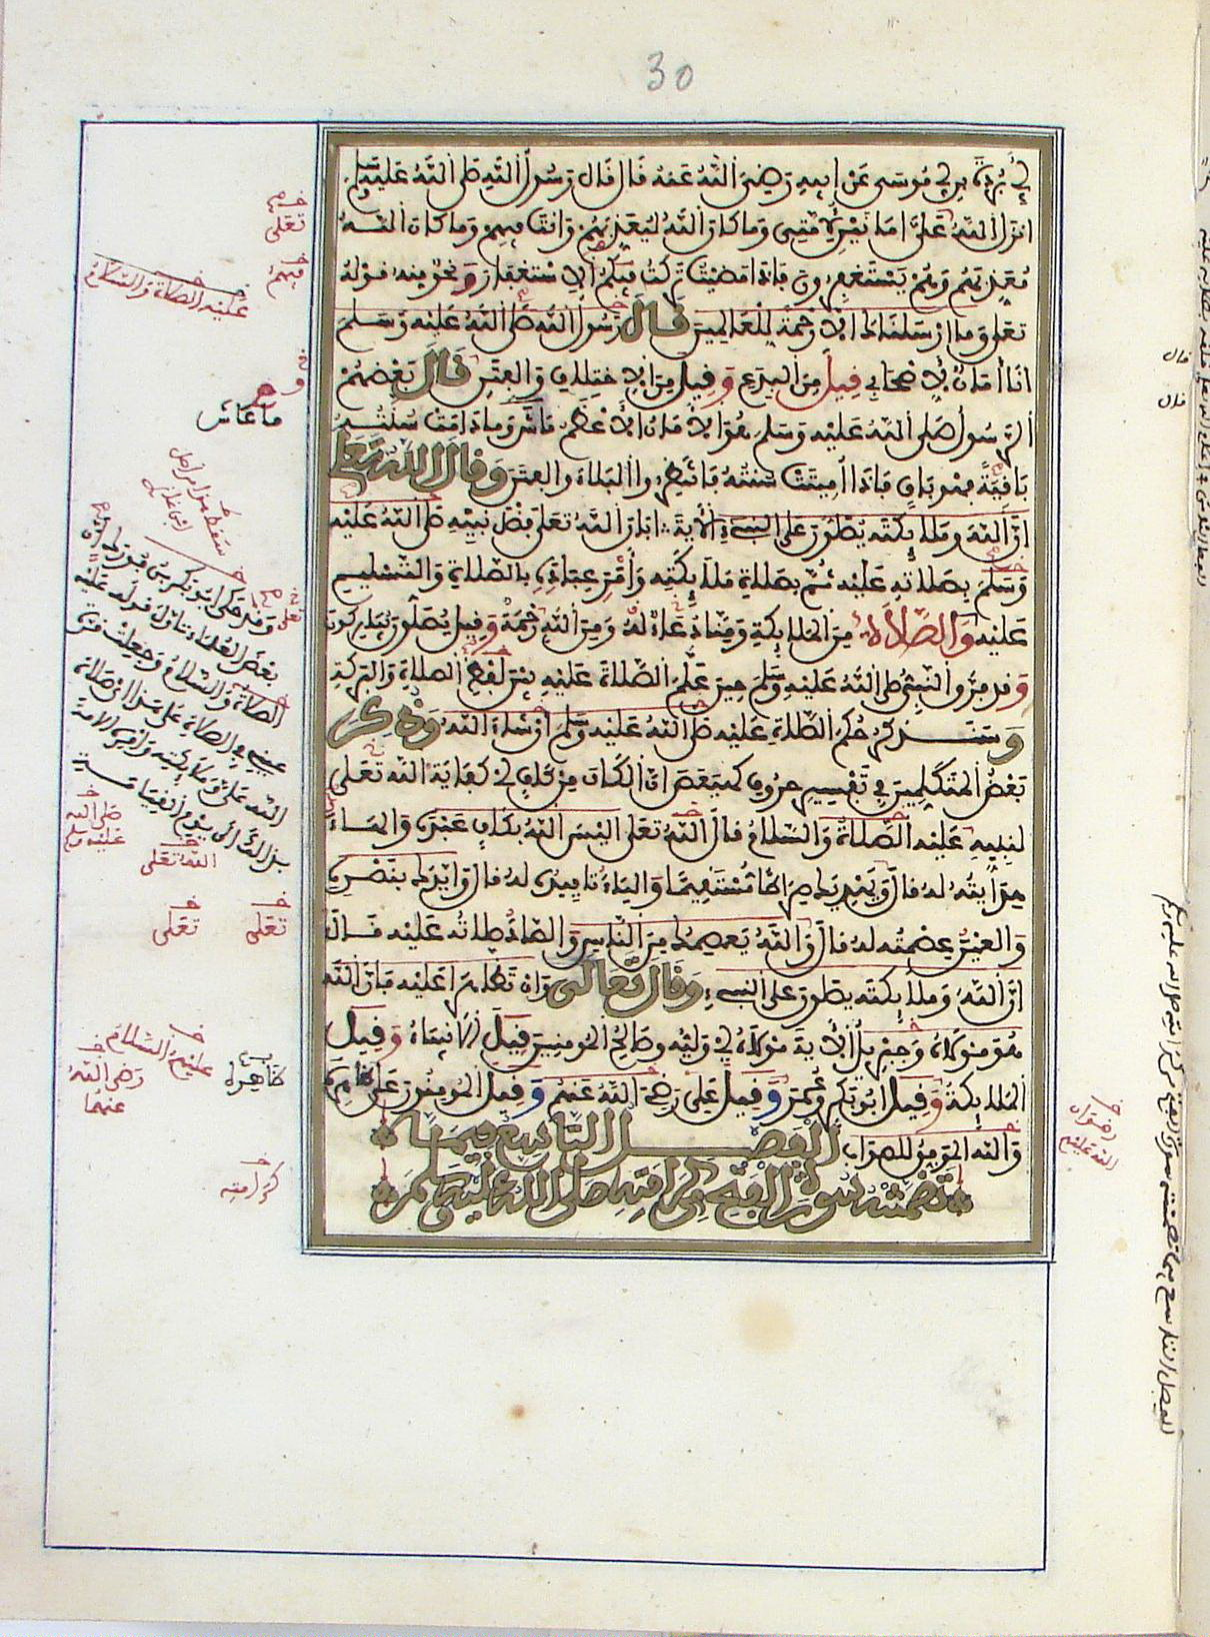 30
أبي بردة بن أبي موسى عن أبيه رضي الله عنه قال قال رسول الله صلى الله عليه وسلم
أنزل الله علي أمانين لأمتي وما كان الله ليعذبهم وأنت فيهم وما كان الله
معذبهم وهم يستغفرون فإذا مضيت تركت فيكم الاستغفار ونحو منه قوله
تعلى وما أرسلناك إلا رحمة للعالمين قال رسول الله صلى الله عليه وسلم
أنا أمان لأصحابي قيل من البدع وقيل من الاختلاف والفتن قال بعضهم
الرسول صلى الله عليه وسلم هو الأمان الأعظم ما عاش وما دامت سنته
باقية فهو باق فإذا أميتت سنته فانتظروا البلاء والفتن وقال الله تعلى
إن الله وملائكته يصلون على النبيء الآية أبان الله تعلى فضل نبيه صلى الله عليه
وسلم بصلاته عليه ثم بصلاة ملائكته وأمر عباده بالصلاة والتسليم
عليه والصلاة من الملائكة ومنا له دعاء ومن الله رحمة وقيل يصلون يباركون
وقد فرق النبي صلى الله عليه وسلم حين علم الصلاة عليه بين لفظ الصلاة والبركة
وسنذكر حكم الصلاة عليه صلى الله عليه وسلم إن شاء الله وذكر
بعض المتكلمين في تفسير حروف كهيعص أن الكاف من كاف أي كفاية الله تعلى
لنبيه عليه الصلاة والسلام قال الله تعلى أليس الله بكاف عبده والهاء
هدايته له قال ويهديك صراطا مستقيما والياء تاييده له قال وأيدك بنصره
والعين عصمته له قال والله يعصمك من الناس والصاد صلاته عليه قال
إن الله وملائكته يصلون على النبيء وقال تعالى وإن تظاهرا عليه فإن الله
هو مولاه وجبريل الآية مولاه أي وليه وصالح المومنين قيل الأنبياء وقيل
الملائكة وقيل أبو بكر وعمر وقيل علي رضي الله عنهم وقيل المومنون على ظاهره
والله الموفق للصواب الفصل التاسع فيما
تضمنته سورة الفتح من كرامته صلى الله عليه وسلم
تعلى
فيهم
عليه الصلاة والسلام
و
ما عاش
تعلى
وقد حكى أبو بكر بن فورك أن
بعض العلماء تأول قوله عليه
الصلاة والسلام وجعلت قرة
عيني في الصلاة على هذا أي في صلاة
الله علي وملائكته وأمره الأمة
بذلك إلى يوم القيامة
صلى الله
عليه وسلم
الله تعلى
تعلى
تعلى
عليهم السلام
ظاهره
رضي الله
عنهما
كرامته
رضوان
الله عليهم
قال
قال
الفصل التاسع فيما تضمنته سورة الفتح من كراماته صلى الله عليه وسلم